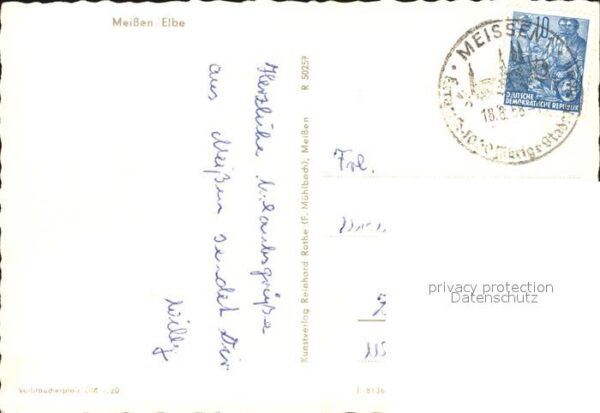 Meißen Elbe
Herzliche Urlaubsgrüße
aus Meißen sendet Dir
Willy
Kunstverlag Reinhard Rothe (F. Mühlbach), Meißen R 50257
Frl.
10
DEUTSCHE
DEMOKRATISCHE REPUBLIK
MEISSEN
18.8.
privacy protection
Datenschutz